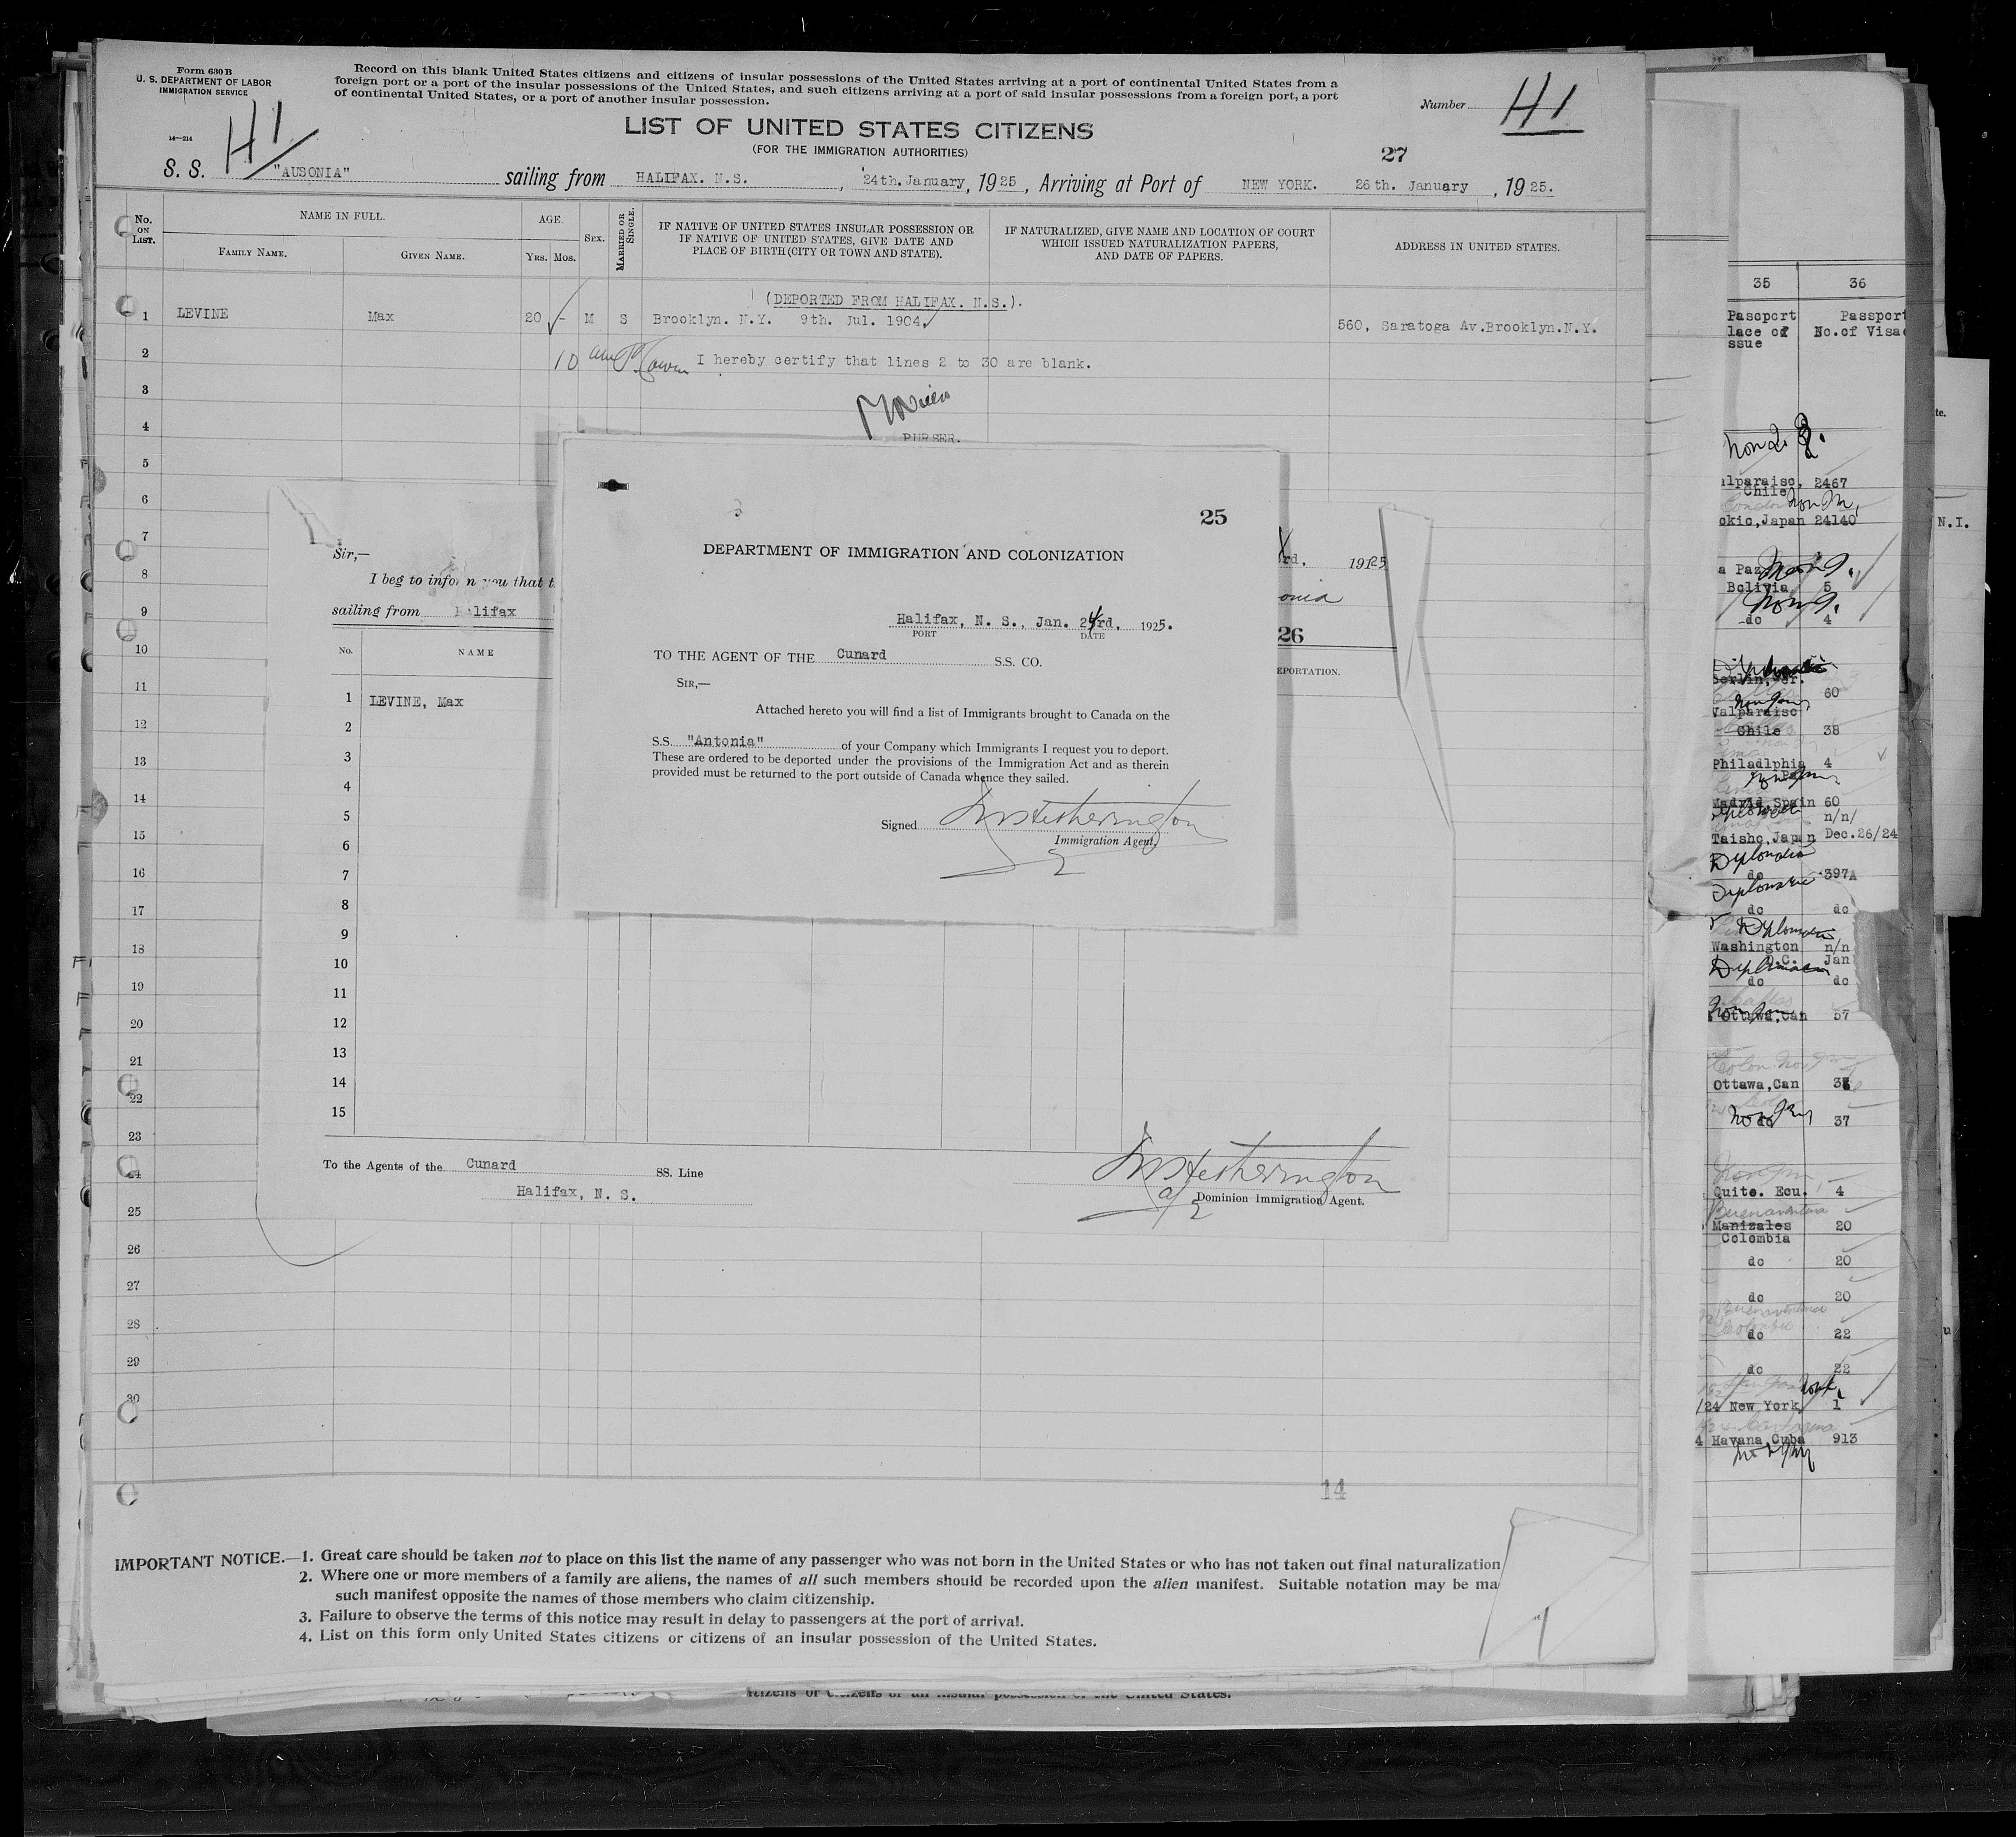 Form 630 B
U. S. DEPARTMENT OF LABOR
IMMIGRATION SERVICE
14—214
Record on this blank United States citizens and citizens of insular possessions of the United States arriving at a port of continental United States from a
foreign port or a port of the insular possessions of the United States, and such citizens arriving at a port of said insular possessions from a foreign port, a port
of continental United States, or a port of another insular possession.
Number H1
H1
LIST OF UNITED STATES CITIZENS
(FOR THE IMMIGRATION AUTHORITIES)
27
S. S. "AUSONIA" sailing from HALIFAX. N.S. , 24th. January, 1925, Arriving at Port of NEW YORK. 26th. January , 1925.
No. ON LIST.
NAME IN FULL.
FAMILY NAME.
GIVEN NAME.
AGE.
Yrs. Mos.
SEX.
MARRIED OR SINGLE.
IF NATIVE OF UNITED STATES INSULAR POSSESSION OR
IF NATIVE OF UNITED STATES, GIVE DATE AND
PLACE OF BIRTH (CITY OR TOWN AND STATE).
IF NATURALIZED, GIVE NAME AND LOCATION OF COURT
WHICH ISSUED NATURALIZATION PAPERS,
AND DATE OF PAPERS.
ADDRESS IN UNITED STATES.
(DEPORTED FROM HALIFAX. N.S.).
1 LEVINE Max 20 - M S Brooklyn. N.Y. 9th. Jul. 1904. 560, Saratoga Av.Brooklyn.N.Y.
2 10 am I hereby certify that lines 2 to 30 are blank.
3
4 PURSER.
5
6
7
8
9
10
11
12
13
14
15
16
17
18
19
20
21
22
23
24
25
26
27
28
29
30
14
Sir,—
I beg to inform you that t
sailing from Halifax
rd, 1925
onia
26
EPORTATION.
No. NAME
1 LEVINE, Max
2
3
4
5
6
7
8
9
10
11
12
13
14
15
To the Agents of the Cunard SS. Line
Halifax, N. S.
Hetherington
Dominion Immigration Agent.
25
DEPARTMENT OF IMMIGRATION AND COLONIZATION
Halifax, N. S., Jan. 24rd, 1925.
PORT DATE
TO THE AGENT OF THE Cunard S.S. CO.
SIR,—
Attached hereto you will find a list of Immigrants brought to Canada on the
S.S. "Antonia" of your Company which Immigrants I request you to deport.
These are ordered to be deported under the provisions of the Immigration Act and as therein
provided must be returned to the port outside of Canada whence they sailed.
Signed Hetherington
Immigration Agent.
IMPORTANT NOTICE.—1. Great care should be taken not to place on this list the name of any passenger who was not born in the United States or who has not taken out final naturalization
2. Where one or more members of a family are aliens, the names of all such members should be recorded upon the alien manifest. Suitable notation may be ma
such manifest opposite the names of those members who claim citizenship.
3. Failure to observe the terms of this notice may result in delay to passengers at the port of arrival.
4. List on this form only United States citizens or citizens of an insular possession of the United States.
itizens or citizens of an insular possession of the United States.
35 36
Passport Passport
lace of No.of Visa
ssue
te.
N.I.
alparaiso, 2467
Chile
okio,Japan 24140
a Paz
Bolivia 5
do 4
Berlin,Ger. 60
Valparaiso
Chile 38
Philadlphia 4
Pa
Madrid,Spain 60
n/n/
Taisho,Japan Dec.26/24
Diplomatic
do 397A
Diplomatic
do do
Diplomatic
Washington n/n
D.C. Jan
Diplomatic
do do
Ottawa,Can 57
Ottawa,Can
do 37
Quito. Ecu. 4
Buenaventura
Manizales 20
Colombia
do 20
do 20
Buenaventura
Colombia
do 22
do 22
/24 New York 1
Cartagena
4 Havana,Cuba 913